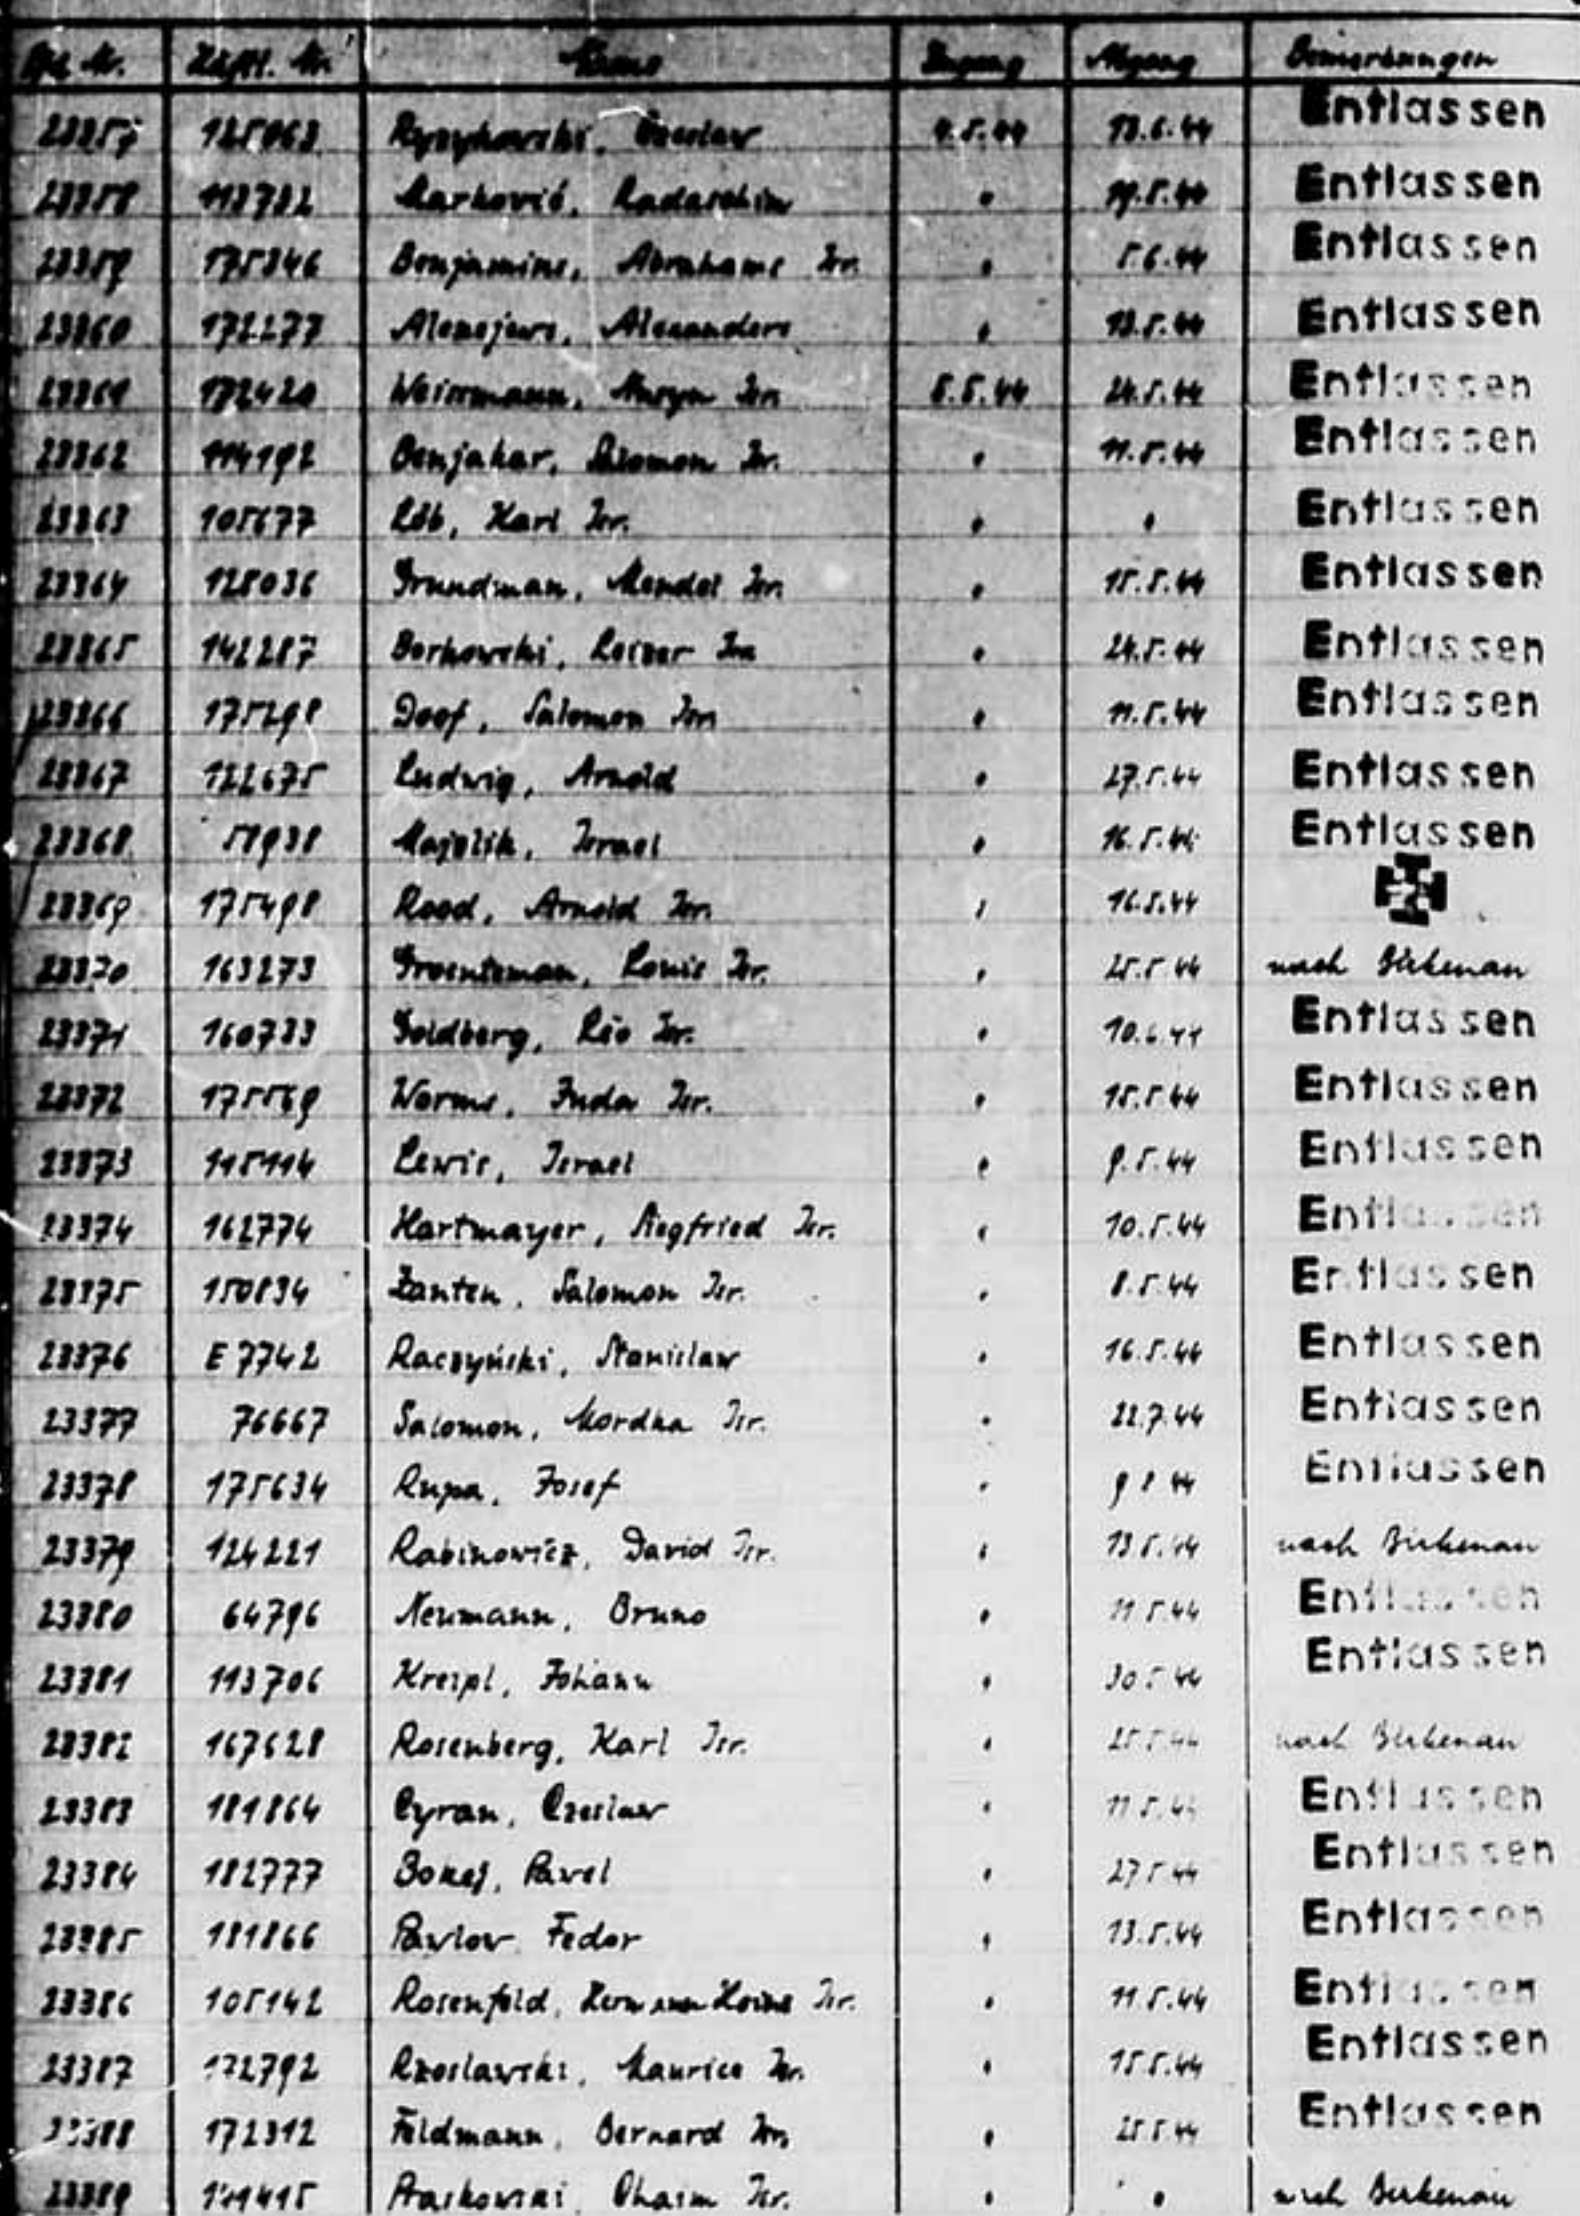 Zugang Abgang Bemerkungen
125063 4.5.44 13.6.44 Entlassen
23358 113732 Marković, Radaschin " 19.5.44 Entlassen
23359 175346 Benjamins, Abrahams Isr. " 5.6.44 Entlassen
23360 172277 " 13.5.44 Entlassen
23361 172420 5.5.44 24.5.44 Entlassen
23362 114192 Benjakar, Salomon Isr. " 11.5.44 Entlassen
23363 105677 Löb, Karl Isr. " " Entlassen
23364 128036 Grundman, Mendel Isr. " 15.5.44 Entlassen
23365 142287 Borkowski, Leiser Isr. " 24.5.44 Entlassen
23366 175298 Doof, Salomon Isr. " 11.5.44 Entlassen
23367 122675 Ludwig, Arnold " 27.5.44 Entlassen
23368 Israel " 16.5.44 Entlassen
23369 175498 Rood, Arnold Isr. " 16.5.44
23370 163273 Groenteman, Louis Isr. " 25.5.44 nach Birkenau
23371 160733 Goldberg, Leo Isr. " 10.6.44 Entlassen
23372 175569 Worms, Juda Isr. " 15.5.44 Entlassen
23373 115114 Lewis, Israel " 9.5.44 Entlassen
23374 162774 Hartmayer, Siegfried Isr. " 10.5.44 Entlassen
23375 150834 Zanten, Salomon Isr. " 8.5.44 Entlassen
23376 E 7742 Raczyński, Stanislaw " 16.5.44 Entlassen
23377 76667 Salomon, Mordka Isr. " 22.7.44 Entlassen
23378 175634 Rupa, Josef " Entlassen
23379 124221 Rabinowicz, David Isr. " 13.5.44 nach Birkenau
23380 64796 Neumann, Bruno " 11.5.44 Entlassen
23381 113706 Kreipl, Johann " 30.5.44 Entlassen
23382 167628 Rosenberg, Karl Isr. " 25.5.44 nach Birkenau
23383 181864 Cyran, Czeslaw " 11.5.44 Entlassen
23384 182777 Pavel " 27.5.44 Entlassen
23385 181866 Pavlov Fedor " 13.5.44 Entlassen
23386 105142 Rosenfeld, Isr. " 11.5.44 Entlassen
23387 172792 Maurice Isr. " 15.5.44 Entlassen
23388 172312 Feldmann, Bernard Isr. " 25.5.44 Entlassen
23389 Chaim Isr. " " nach Birkenau